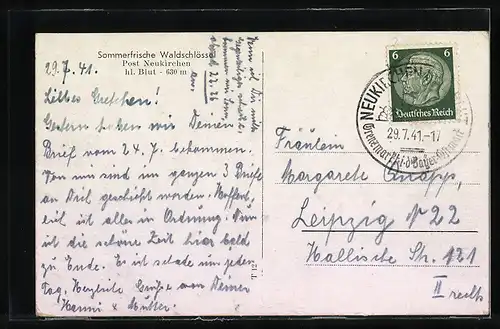 Sommerfrische Waldschlössl
Post Neukirchen
hl. Blut - 630 m
29.7.41.
Liebes Gretchen!
Gestern haben wir Deinen
Brief vom 24.7. bekommen.
Von uns sind im ganzen 3 Briefe
an Dich geschickt worden. Hoffent-
lich ist alles in Ordnung. Nun
ist die schöne Zeit hier bald
zu Ende. Es ist schade um jeden
Tag. Herzliche Grüße von Deiner
Hanni & Mutter.
Wenn Dir nichts
kommen wir
6 6
Deutsches Reich
NEUKIRCHEN
29.7.41.-17
Grenzmarkt i.d. Bayer. Ostmark
Fräulein
Margarete Knapp,
Leipzig N 22
Hallische Str. 131
II rechts